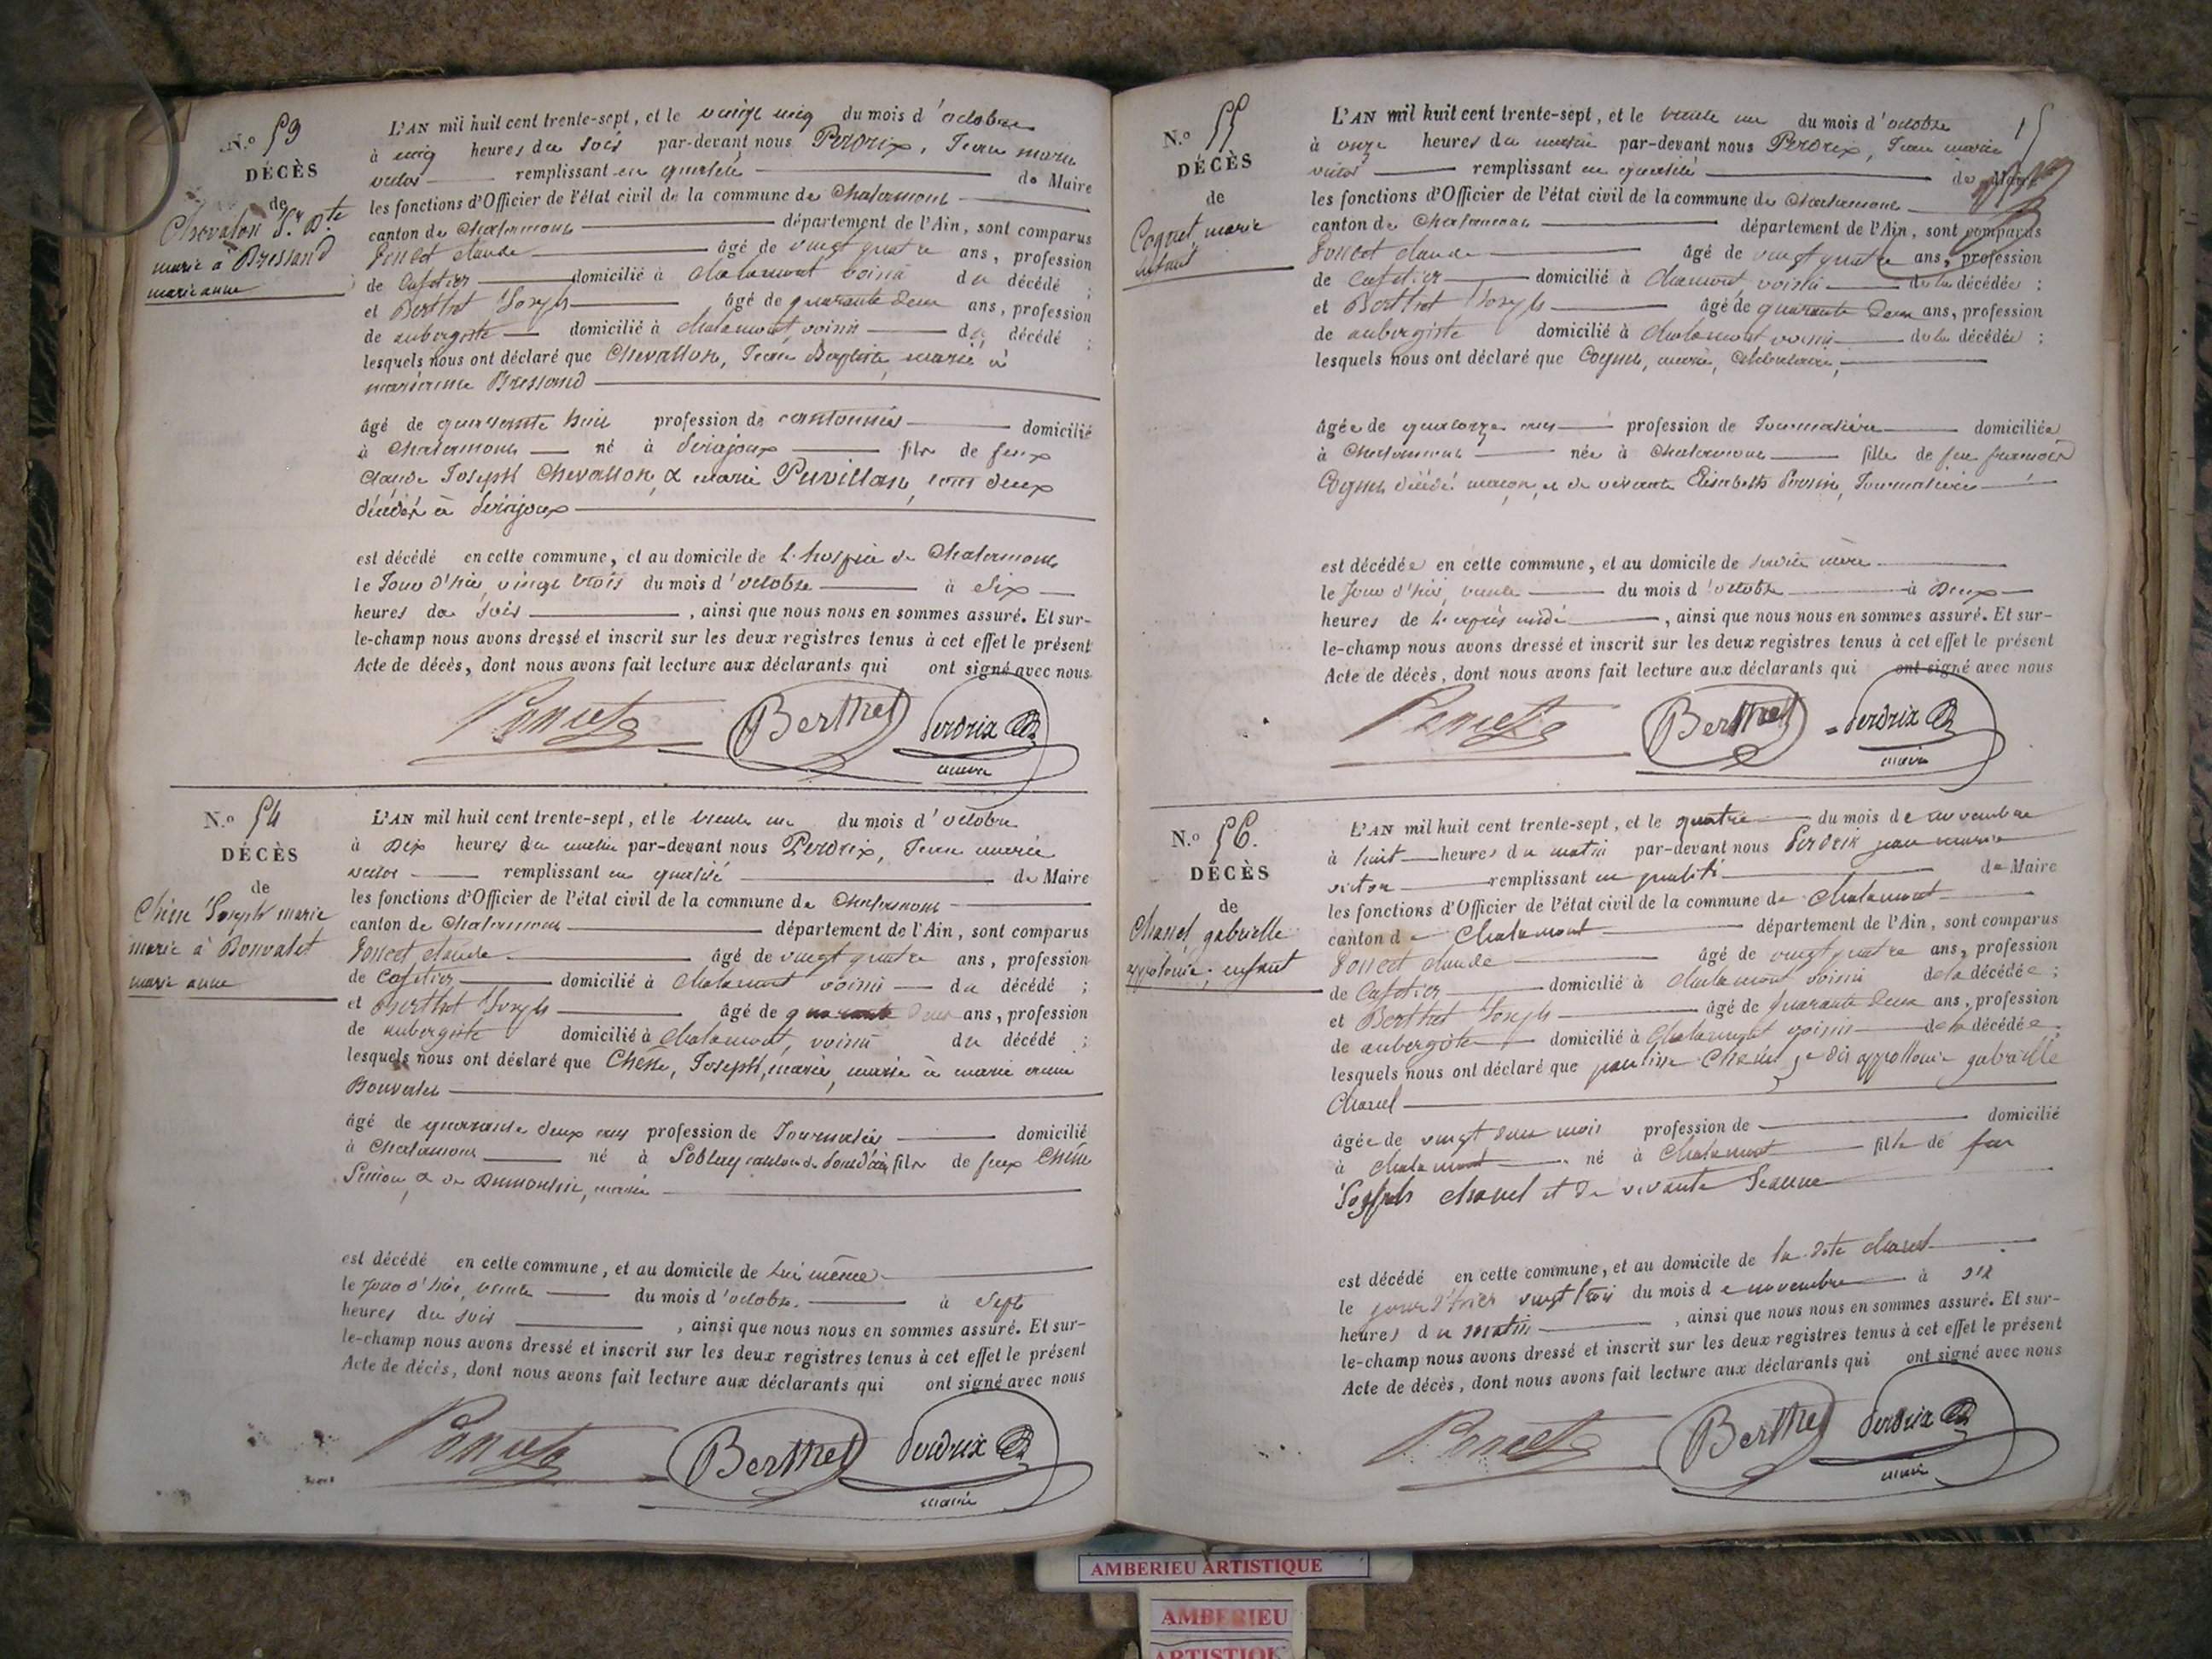 N.o 53
DÉCÈS
de
Chevalon Jn. Bte
marié à Bressand
marie anne
L'AN mil huit cent trente-sept, et le vingt cinq du mois d'octobre
à cinq heures du soir par-devant nous Perdrix, Jean marie
victor remplissant en qualité de Maire
les fonctions d'Officier de l'état civil de la commune de Chalamont
canton de Chalamont département de l'Ain, sont comparus
Poncet claude âgé de vingt quatre ans, profession
de Cafetier domicilié à Chalamont voisin du décédé ;
et Berthet Joseph âgé de quarante deux ans, profession
de aubergiste domicilié à chalamont, voisin du décédé ;
lesquels nous ont déclaré que Chevallon, Jean Baptiste, marié à
marianne Bressand
âgé de quarante huit profession de cantonnier domicilié
à Chalamont né à fils de feux
Claude Joseph Chevallon, & marie Puvillan, tous deux
décédés à
est décédé en cette commune, et au domicile de L'hospice de Chalamont
le Jour d'hier, vingt trois du mois d'octobre à Six
heures du soir , ainsi que nous nous en sommes assuré. Et sur-
le-champ nous avons dressé et inscrit sur les deux registres tenus à cet effet le présent
Acte de décès, dont nous avons fait lecture aux déclarants qui ont signé avec nous
Poncet Berthet Perdrix
maire
N.o 54
DÉCÈS
de
Chêne Joseph marie
marié à Bonvalet
marie anne
L'AN mil huit cent trente-sept, et le trente un du mois d'octobre
à Dix heures du matin par-devant nous Perdrix, Jean marie
victor remplissant en qualité de Maire
les fonctions d'Officier de l'état civil de la commune de Chalamont
canton de Chalamont département de l'Ain, sont comparus
Poncet claude âgé de vingt quatre ans, profession
de Cafetier domicilié à Chalamont voisin du décédé ;
et Berthet Joseph âgé de quarante deux ans, profession
de aubergiste domicilié à Chalamont, voisin du décédé ;
lesquels nous ont déclaré que Chêne, Joseph, marie, marié à marie anne
Bonvalet
âgé de quarante deux ans profession de Journalier domicilié
à Chalamont né à fils de feux Chêne
& de Dumoulin, marie
est décédé en cette commune, et au domicile de Lui même
le Jour d'hier, trente du mois d'octobre à Sept
heures du soir , ainsi que nous nous en sommes assuré. Et sur-
le-champ nous avons dressé et inscrit sur les deux registres tenus à cet effet le présent
Acte de décès, dont nous avons fait lecture aux déclarants qui ont signé avec nous
Poncet Berthet Perdrix
maire
15
N.o 55
DÉCÈS
de
Cognet, marie
enfant
L'AN mil huit cent trente-sept, et le trente un du mois d'octobre
à onze heures du matin par-devant nous Perdrix, Jean marie
victor remplissant en qualité de Maire
les fonctions d'Officier de l'état civil de la commune de Chalamont
canton de Chalamont département de l'Ain, sont comparus
Poncet claude âgé de vingt quatre ans, profession
de Cafetier domicilié à Chamont, voisin de la décédée ;
et Berthet Joseph âgé de quarante deux ans, profession
de aubergiste domicilié à Chalamont voisin de la décédée ;
lesquels nous ont déclaré que Cognet, marie, Célibataire,
âgée de quatorze ans profession de Journalière domiciliée
à Chalamont née à Chalamont fille de feu françois
Cognet décédé maçon, et de vivante Elisabeth Journalière
est décédée en cette commune, et au domicile de sadite mère
le Jour d'hier, trente du mois d'octobre à Deux
heures de L'après midi , ainsi que nous nous en sommes assuré. Et sur-
le-champ nous avons dressé et inscrit sur les deux registres tenus à cet effet le présent
Acte de décès, dont nous avons fait lecture aux déclarants qui ont signé avec nous
Poncet Berthet Perdrix
maire
N.o 56.
DÉCÈS
de
Chanel, gabrielle
appolonie, enfant
L'AN mil huit cent trente-sept, et le quatre du mois de novembre
à huit heures du matin par-devant nous Perdrix jean marie
victor remplissant en qualité de Maire
les fonctions d'Officier de l'état civil de la commune de Chalamont
canton de Chalamont département de l'Ain, sont comparus
Poncet claude âgé de vingt quatre ans, profession
de Cafetier domicilié à Chalamont voisin de la décédée ;
et Berthet Joseph âgé de quarante deux ans, profession
de aubergiste domicilié à Chalamont voisin de la décédée ;
lesquels nous ont déclaré que appollonie gabrielle
Chanel
âgée de vingt deux mois profession de domicilié
à Chalamont né à Chalamont fille de feu
Joseph chanel et de vivante Jeanne
est décédé en cette commune, et au domicile de la dite chanel
le jour d'hier vingt trois du mois de novembre à dix
heures du matin , ainsi que nous nous en sommes assuré. Et sur-
le-champ nous avons dressé et inscrit sur les deux registres tenus à cet effet le présent
Acte de décès, dont nous avons fait lecture aux déclarants qui ont signé avec nous
Poncet Berthet Perdrix
maire
AMBERIEU ARTISTIQUE
AMBERIEU
ARTISTIQUE